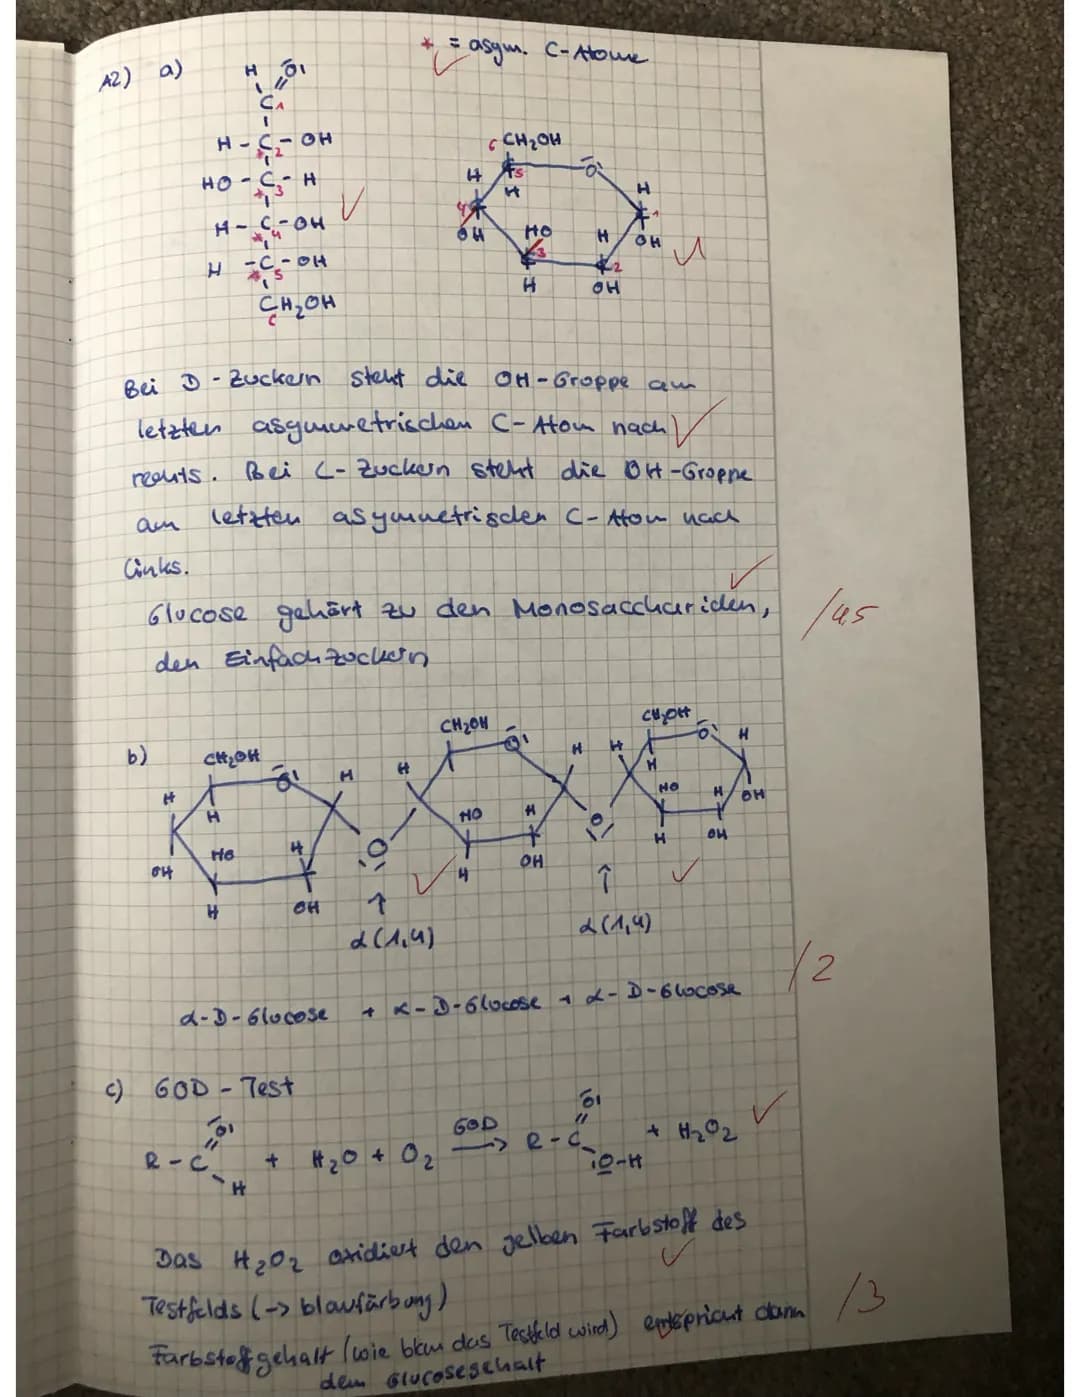 * = asym. C-Atome
A2) a)
H O
C1
H - C2 - OH
HO - C3 - H
H - C4 - OH
H - C5 - OH
CH2OH
6
6 CH2OH
5 O
H H H
4 1
OH HO H OH
3 2
H OH
Bei D - Zuckern steht die OH-Groppe am
letzten asymmetrischen C-Atom nach
rechts. Bei L-Zuckern steht die OH-Groppe
am letzten asymmetrischen C-Atom nach
links.
Glucose gehört zu den Monosacchariden,
den Einfachzuckern
/4,5
b)
CH2OH CH2OH CH2OH
O O O H
H H H H H
H H
HO H HO H HO H OH
OH O O
H OH H OH H OH
↑ ↑
α(1,4) α(1,4)
α-D-Glucose + α-D-Glucose + α-D-Glucose
/2
c) GOD - Test
R - C O H + H2O + O2 GOD → R - C O O-H + H2O2
Das H2O2 oxidiert den gelben Farbstoff des
Testfelds (-> blaufärbung)
Farbstoffgehalt (wie blau das Testfeld wird) entspricht dann
dem Glucosegehalt
/3